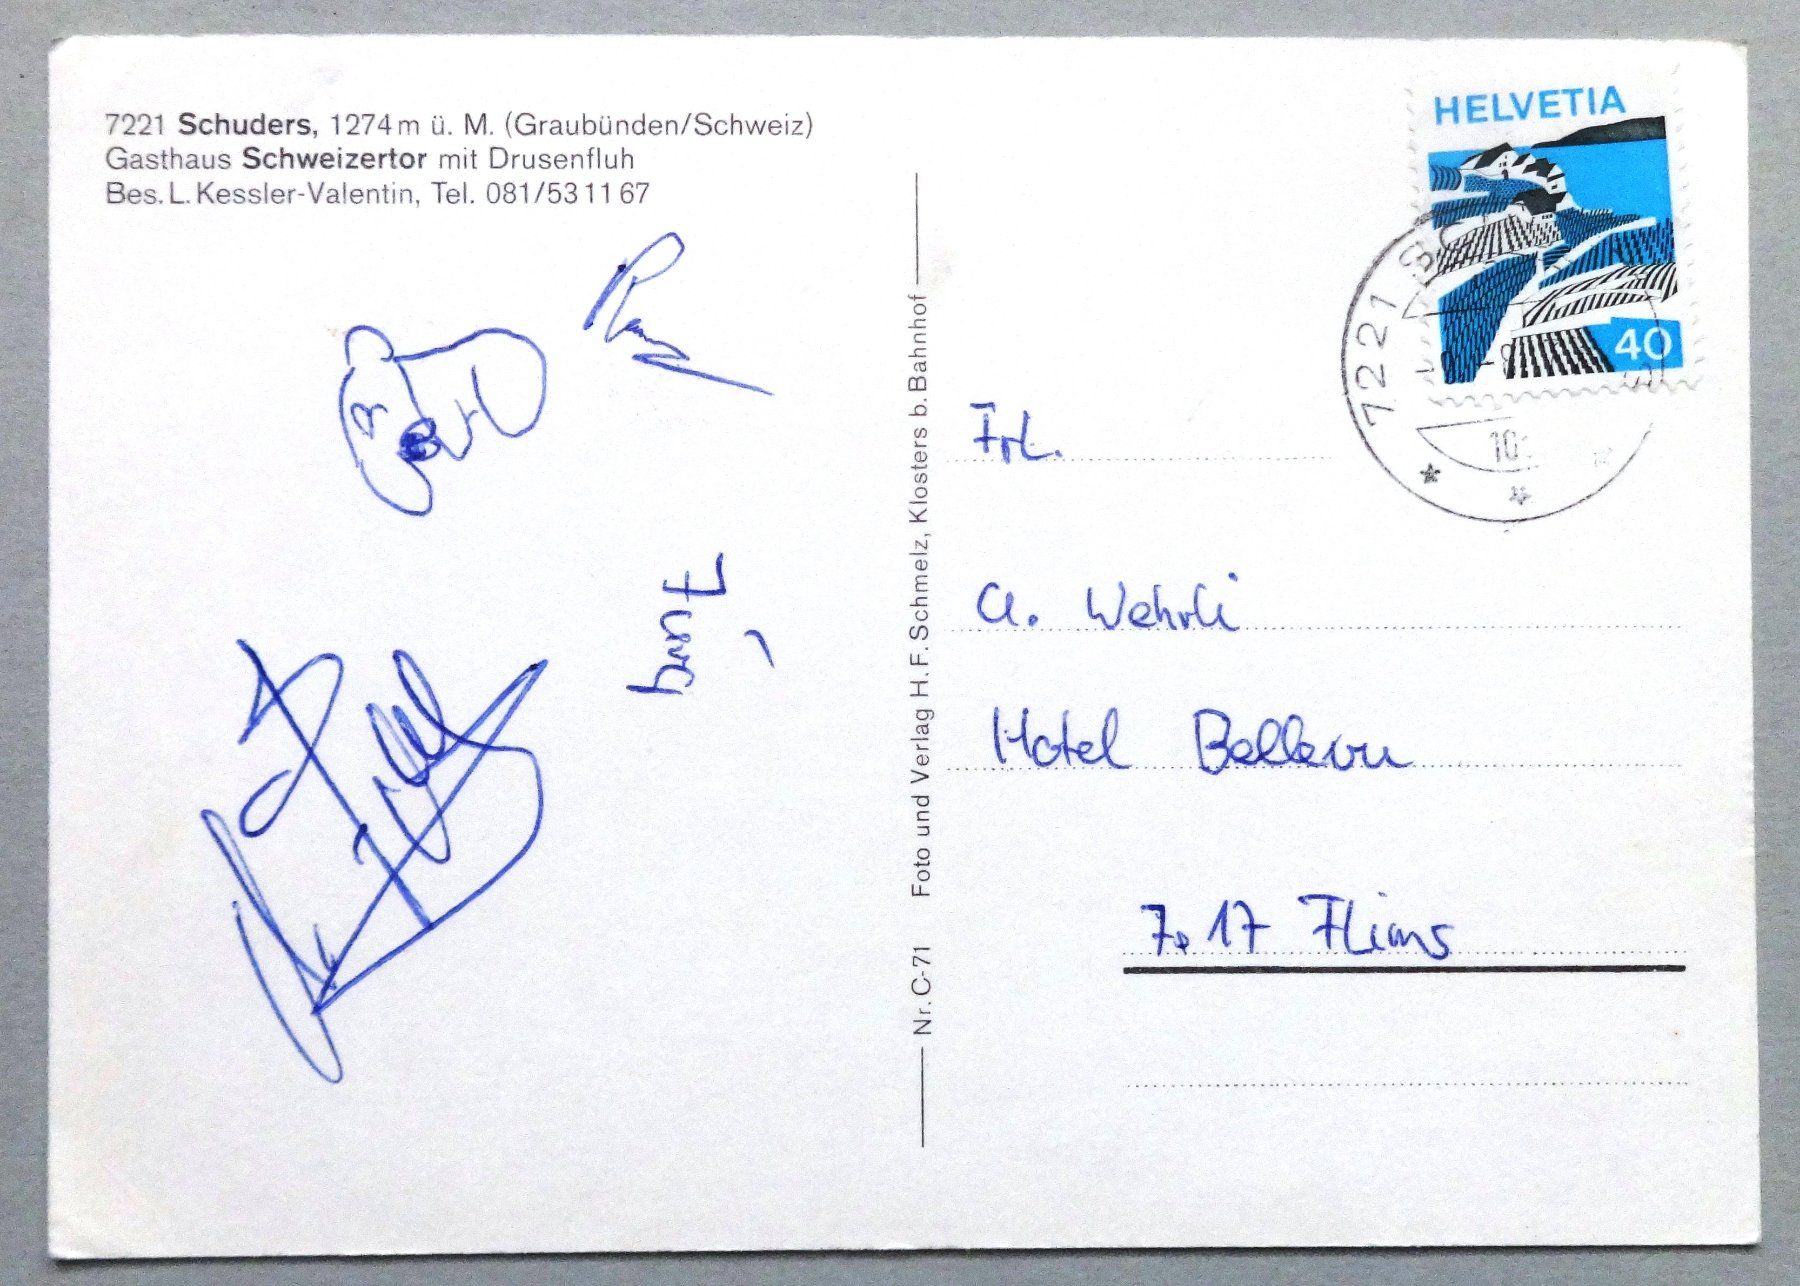 7221 Schuders, 1274 m ü. M. (Graubünden/Schweiz)
Gasthaus Schweizertor mit Drusenfluh
Bes. L. Kessler-Valentin, Tel. 081/53 11 67
Nr. C-71 Foto und Verlag H. F. Schmelz, Klosters b. Bahnhof
HELVETIA
40
7221
10
Frl.
A. Wehrli
Hotel Bellevu
7017 Flims